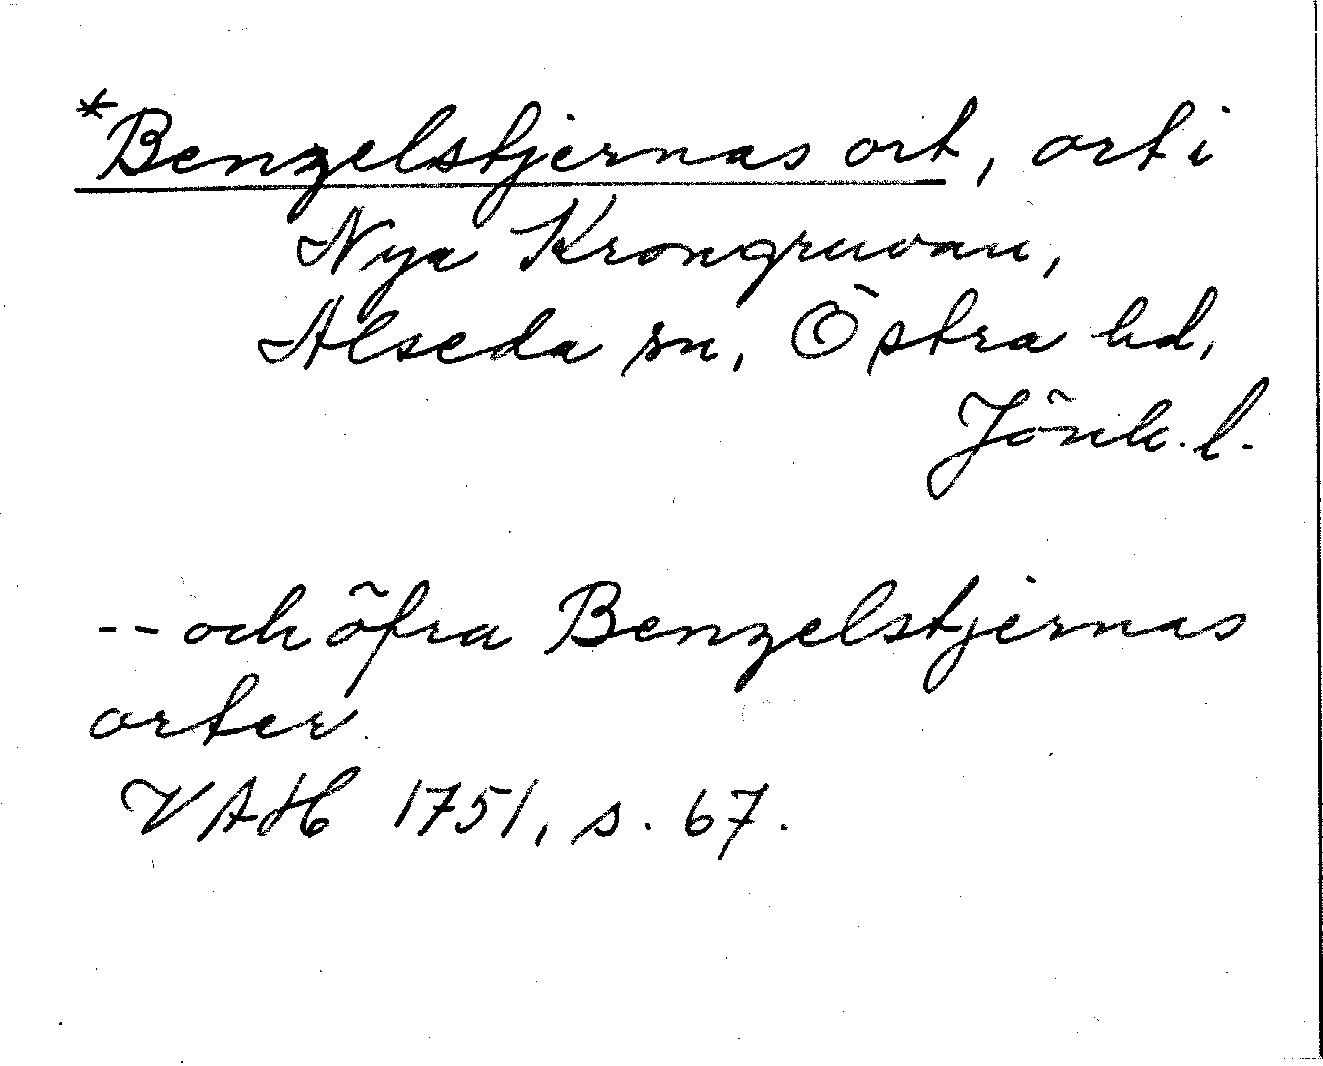 *Benzelstjernas ort, ort i
Nya Krongruvan,
Alseda sn, Östra hd,
Jönk. l.
-- och öfra Benzelstjernas
orter
VAH 1751, s. 67.